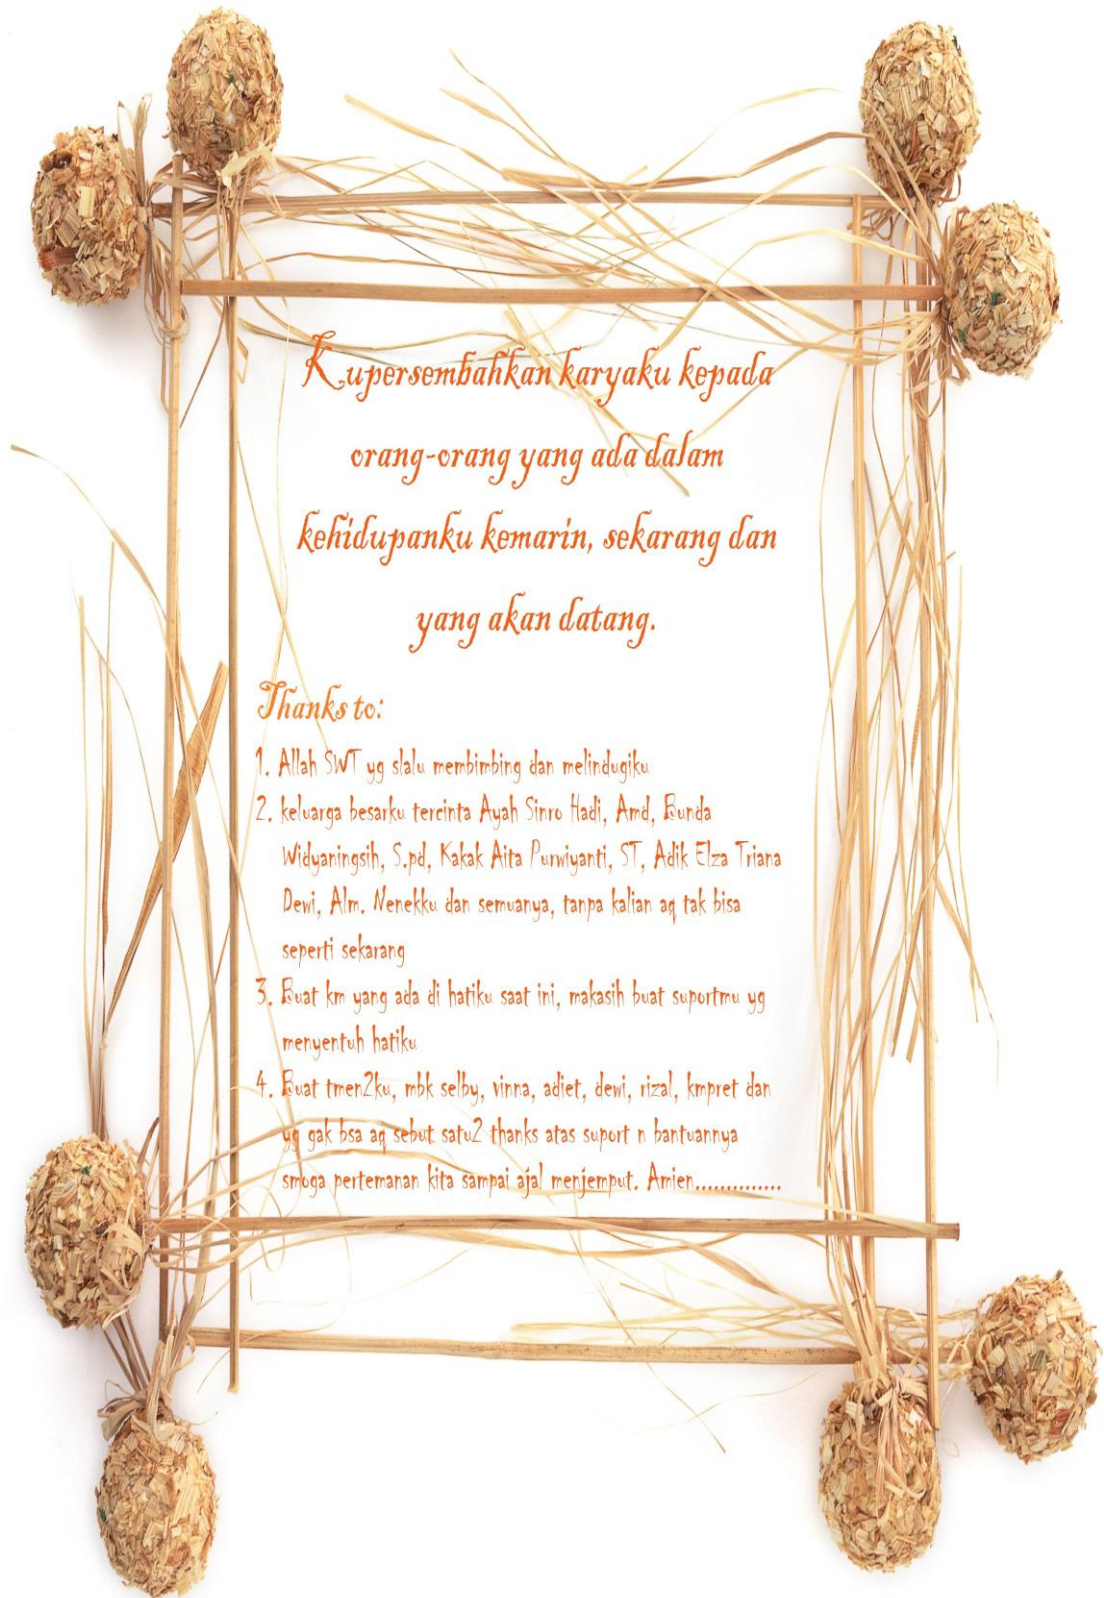 Kupersembahkan karyaku kepada
orang-orang yang ada dalam
kehidupanku kemarin, sekarang dan
yang akan datang.
Thanks to:
1. Allah SWT yg slalu membimbing dan melindugiku
2. keluarga besarku tercinta Ayah Sinro Hadi, Amd, Bunda
Widyaningsih, S.pd, Kakak Aita Purwiyanti, ST, Adik Elza Triana
Dewi, Alm. Nenekku dan semuanya, tanpa kalian aq tak bisa
seperti sekarang
3. Buat km yang ada di hatiku saat ini, makasih buat suportmu yg
menyentuh hatiku
4. Buat tmen2ku, mbk selby, vinna, adiet, dewi, rizal, kmpret dan
yg gak bsa aq sebut satu2 thanks atas suport n bantuannya
smoga pertemanan kita sampai ajal menjemput. Amien..............